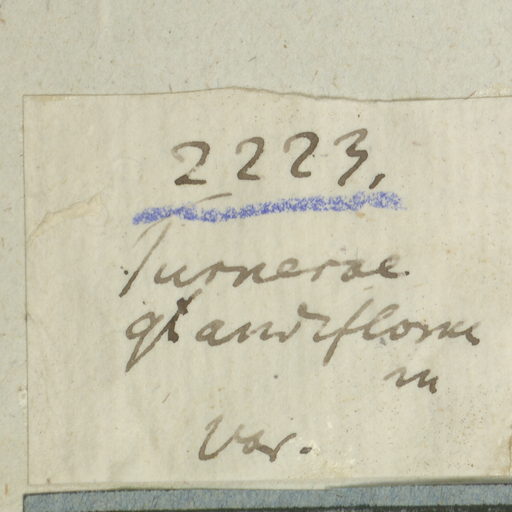 2223.
Turnerae
grandiflorae
m
var.